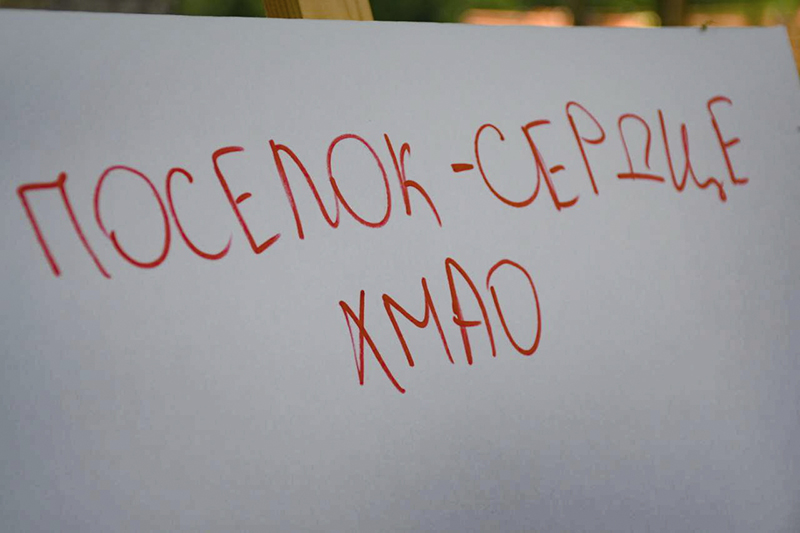 ПОСЕЛОК-СЕРДЦЕ
ХМАО